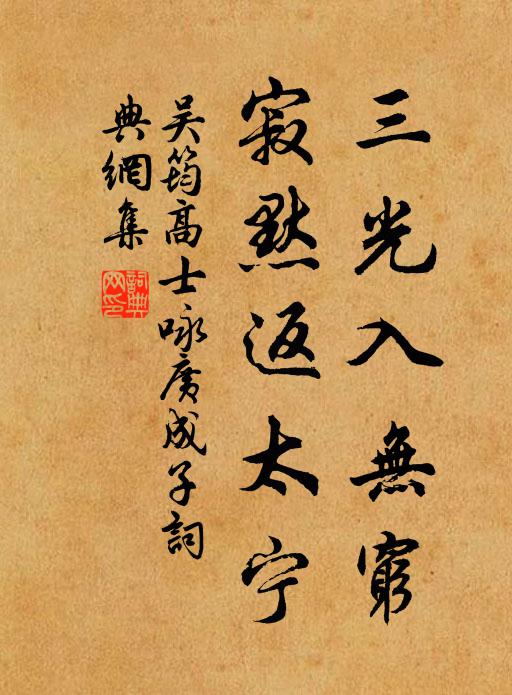 三光入無窮
寂默返太宁
吴筠高士咏廣成子詞
典網集
詞典
网印